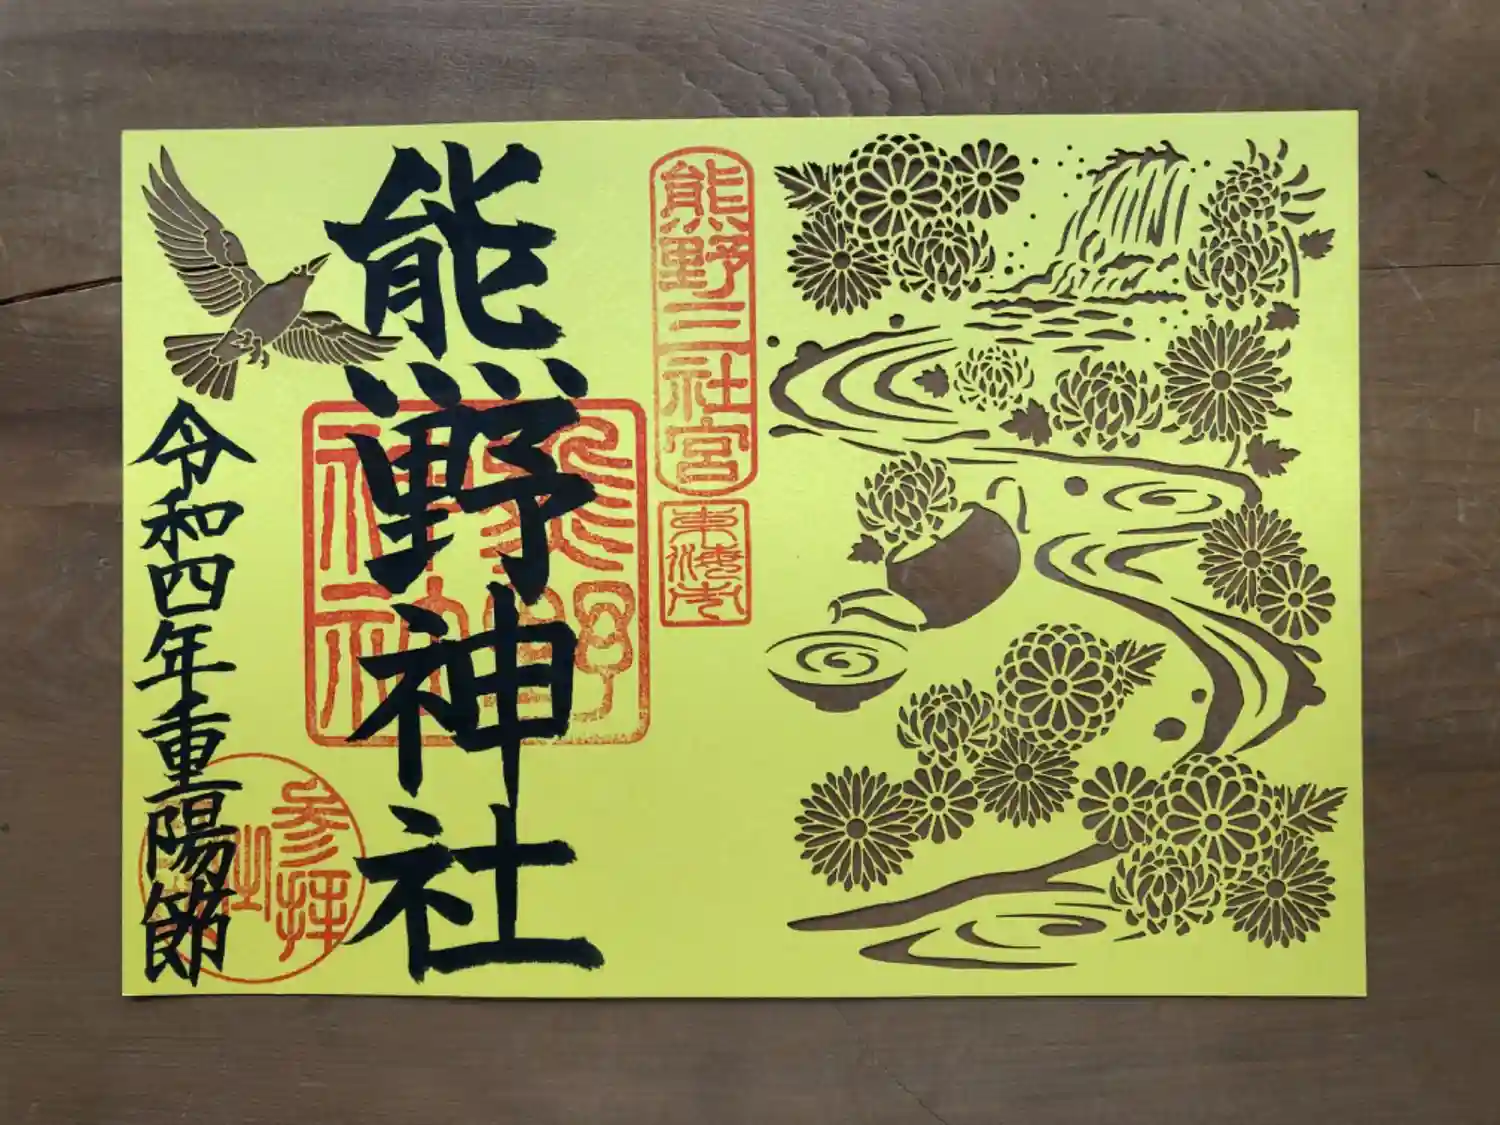 熊野三社宮
熊野神社
熊野
神社
令和四年重陽節
参拝
之